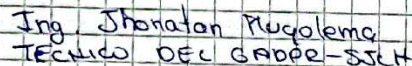 Ing. Jhonatan Plugolema
TECNICO DEL GADPR-SJCH